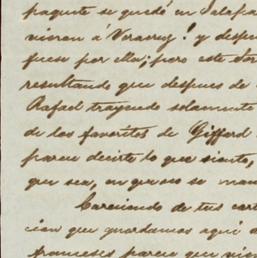 paquete se quedó en Jalapa
vinieron á Veracruz! y despu
fuese por ella; pero este
resultando que despues de
Rafael trayendo solamente
de los favoritos de Gifford
parece decirte lo que siento,
que sea, en que no se man
Careciendo de tus cart
cion que guardamos aqui d
franceses parece que